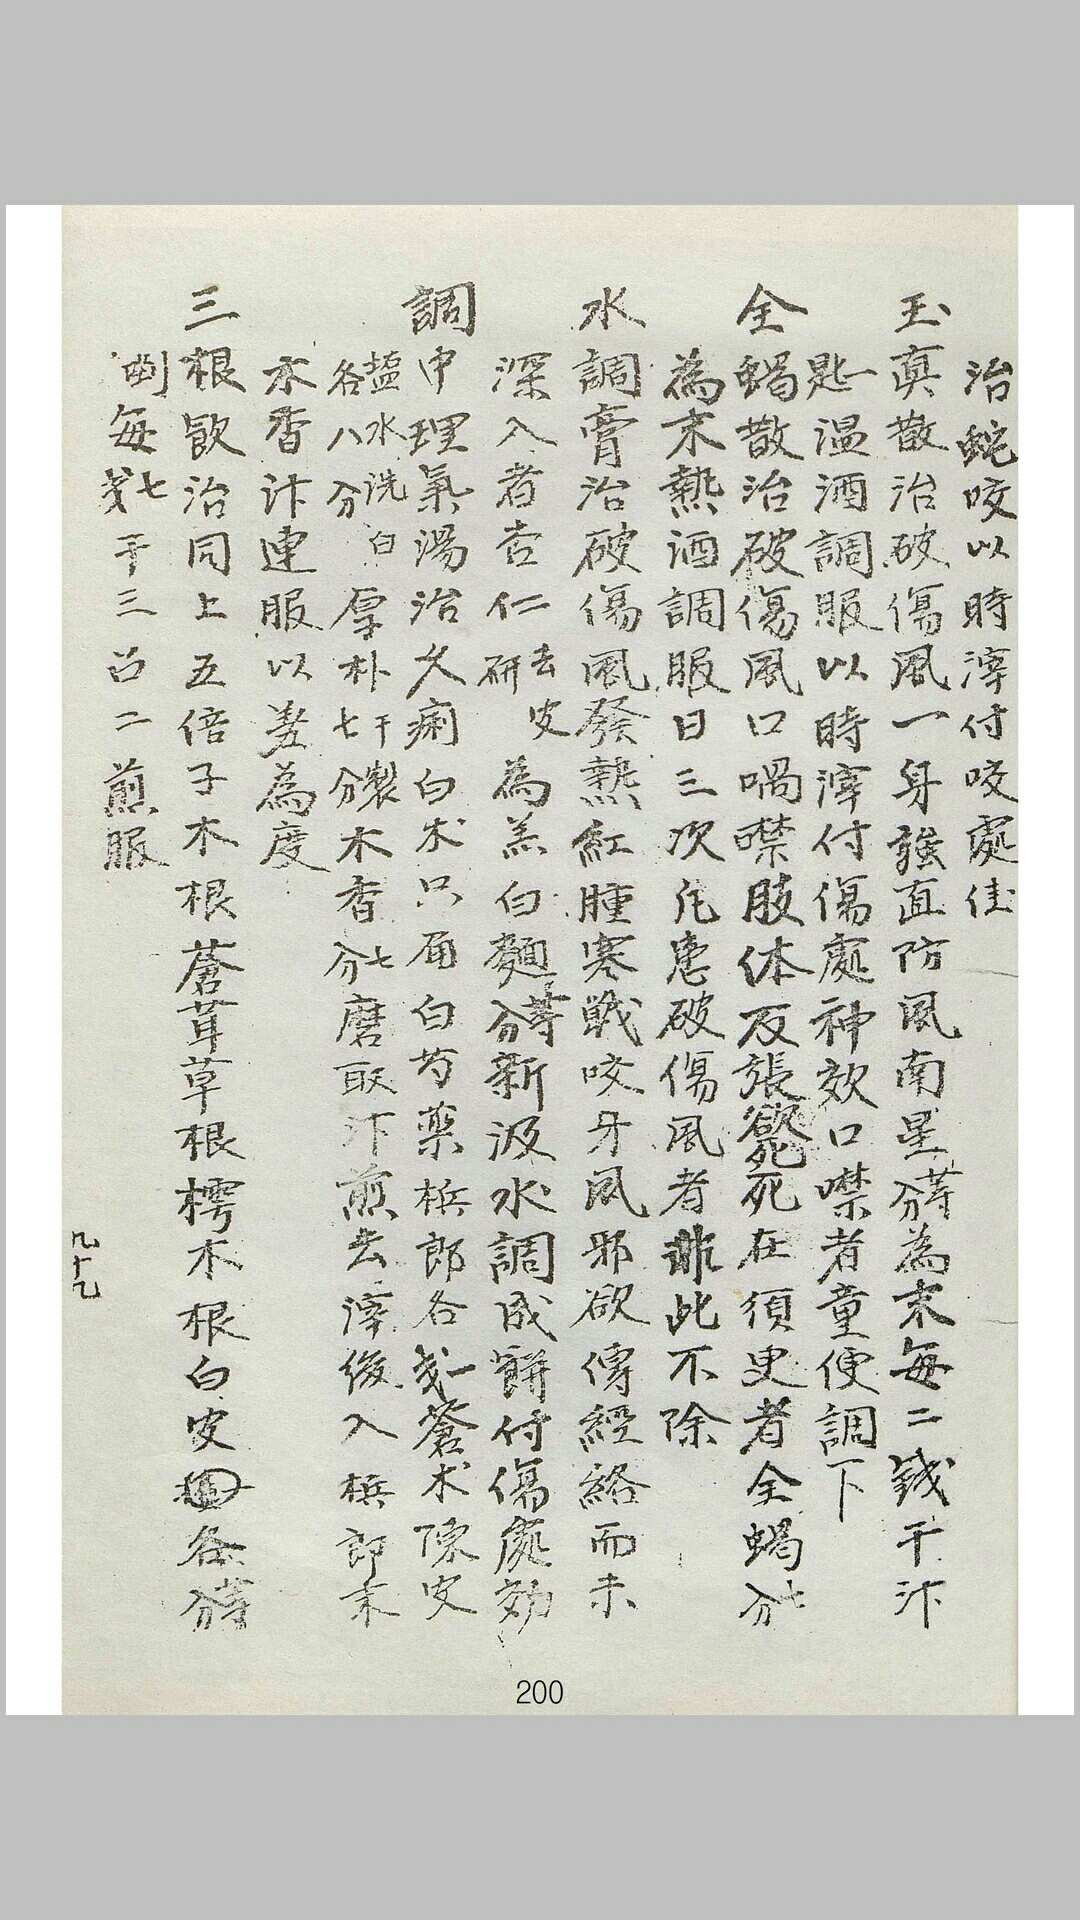 治蛇咬以時滓付咬處佳
玉真散治破傷風一身強直防風南星等分為末每二戔干汁
匙一温酒調服以時滓付傷處神效口噤者童便調下
全蝎散治破傷風口喎噤肢体反張欲死死在須更者全蝎七分
為末熱酒調服日三次凡患破傷風者非此不除
水調膏治破傷風發熱紅腫寒戦咬牙風邪欲傳經絡而未
深入者杏仁去皮研為羔白麵等分新汲水調成餅付傷處効
調中理氣湯治久痢白朮只角白芍藥梹郎各一戔蒼朮陳皮
塩水洗白各八分厚朴干製七分木香七分磨取汁煎去滓後入梹郎末
木香汁連服以差為度
三根飲治同上五倍子木根蒼茸草根樗木根白皮各等分
剉每七戔干三召二煎服
九十九
200